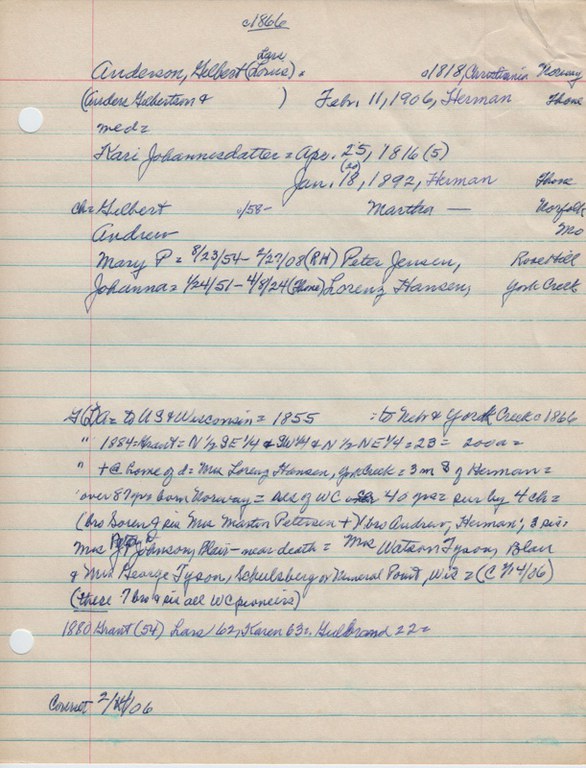 c1866
Lars
Anderson, Gilbert (Lorns) = c1818, Christiania Norway
(Anders Gilbertson & ) Febr. 11, 1906, Herman Thone
med =
Kari Johannesdatter = Apr. 25, 1816 (5)
(20)
Jan. 18, 1892, Herman Thone
ch = Gilbert c/58- Martha — Norfolk
Andrew Mo
Mary P = 8/23/54 - 2/27/08 (RH) Peter Jensen, Rose Hill
Johanna = 1/24/51 - 4/8/24 (Thone) Lorenz Hansen, York Creek
G(L)A = to US & Wisconsin = 1855 = to Nebr & York Creek c 1866
" 1884 = Grant = N 1/2 SE 1/4 & SW 1/4 & N 1/2 NE 1/4 = 23 = 200a =
" + @ home of d = Mrs Lorenz Hansen, York Creek = 3 m S of Herman =
over 87 yrs born Norway = res of WC 40 yrs = sur by 4 ch =
(bro Soren & sis Mrs Martin Petterson +) (bro Andrew, Herman; 3 sis:
Mrs P Johnson, Blair - near death = Mrs Watson Tyson, Blair
& Mrs George Tyson, Schulsberg or Mineral Point, Wis = (C 2/14/06)
(these 7 bro & sis all WC pioneers)
1880 Grant (54) Lars 62, Karen 63 =, Gulbrand 22 =
Courier 2/14/06